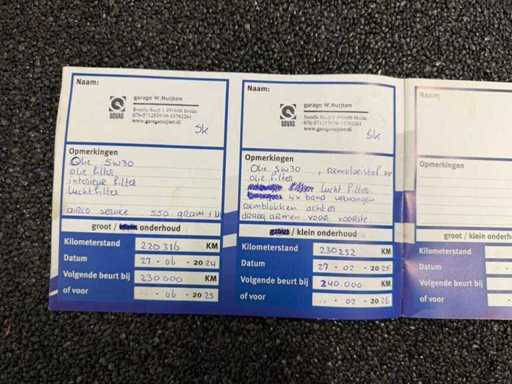 Naam:
garage W.Huijten
BOVAG
www.garagehuijten.nl
Sk
Opmerkingen
Olie 5W30
olie filter
interieur filter
luchtfilter
airco service 550 gram
groot / onderhoud
Kilometerstand 220316 KM
Datum 27 - 06 - 2024
Volgende beurt bij 230.000 KM
of voor .. - 06 - 2025
Naam:
garage W.Huijten
BOVAG
www.garagehuijten.nl
Sk
Opmerkingen
Olie 5W30, remvloeistof
olie filter
lucht filter
4x band vervangen
remblokken achter
draag armen voor
/ klein onderhoud
Kilometerstand 230232 KM
Datum 27 - 02 - 2025
Volgende beurt bij 240.000 KM
of voor .. - 02 - 2026
Naam:
Opmerkingen
groot / klein onderh
Kilometerstand
Datum
Volgende beurt bij
of voor